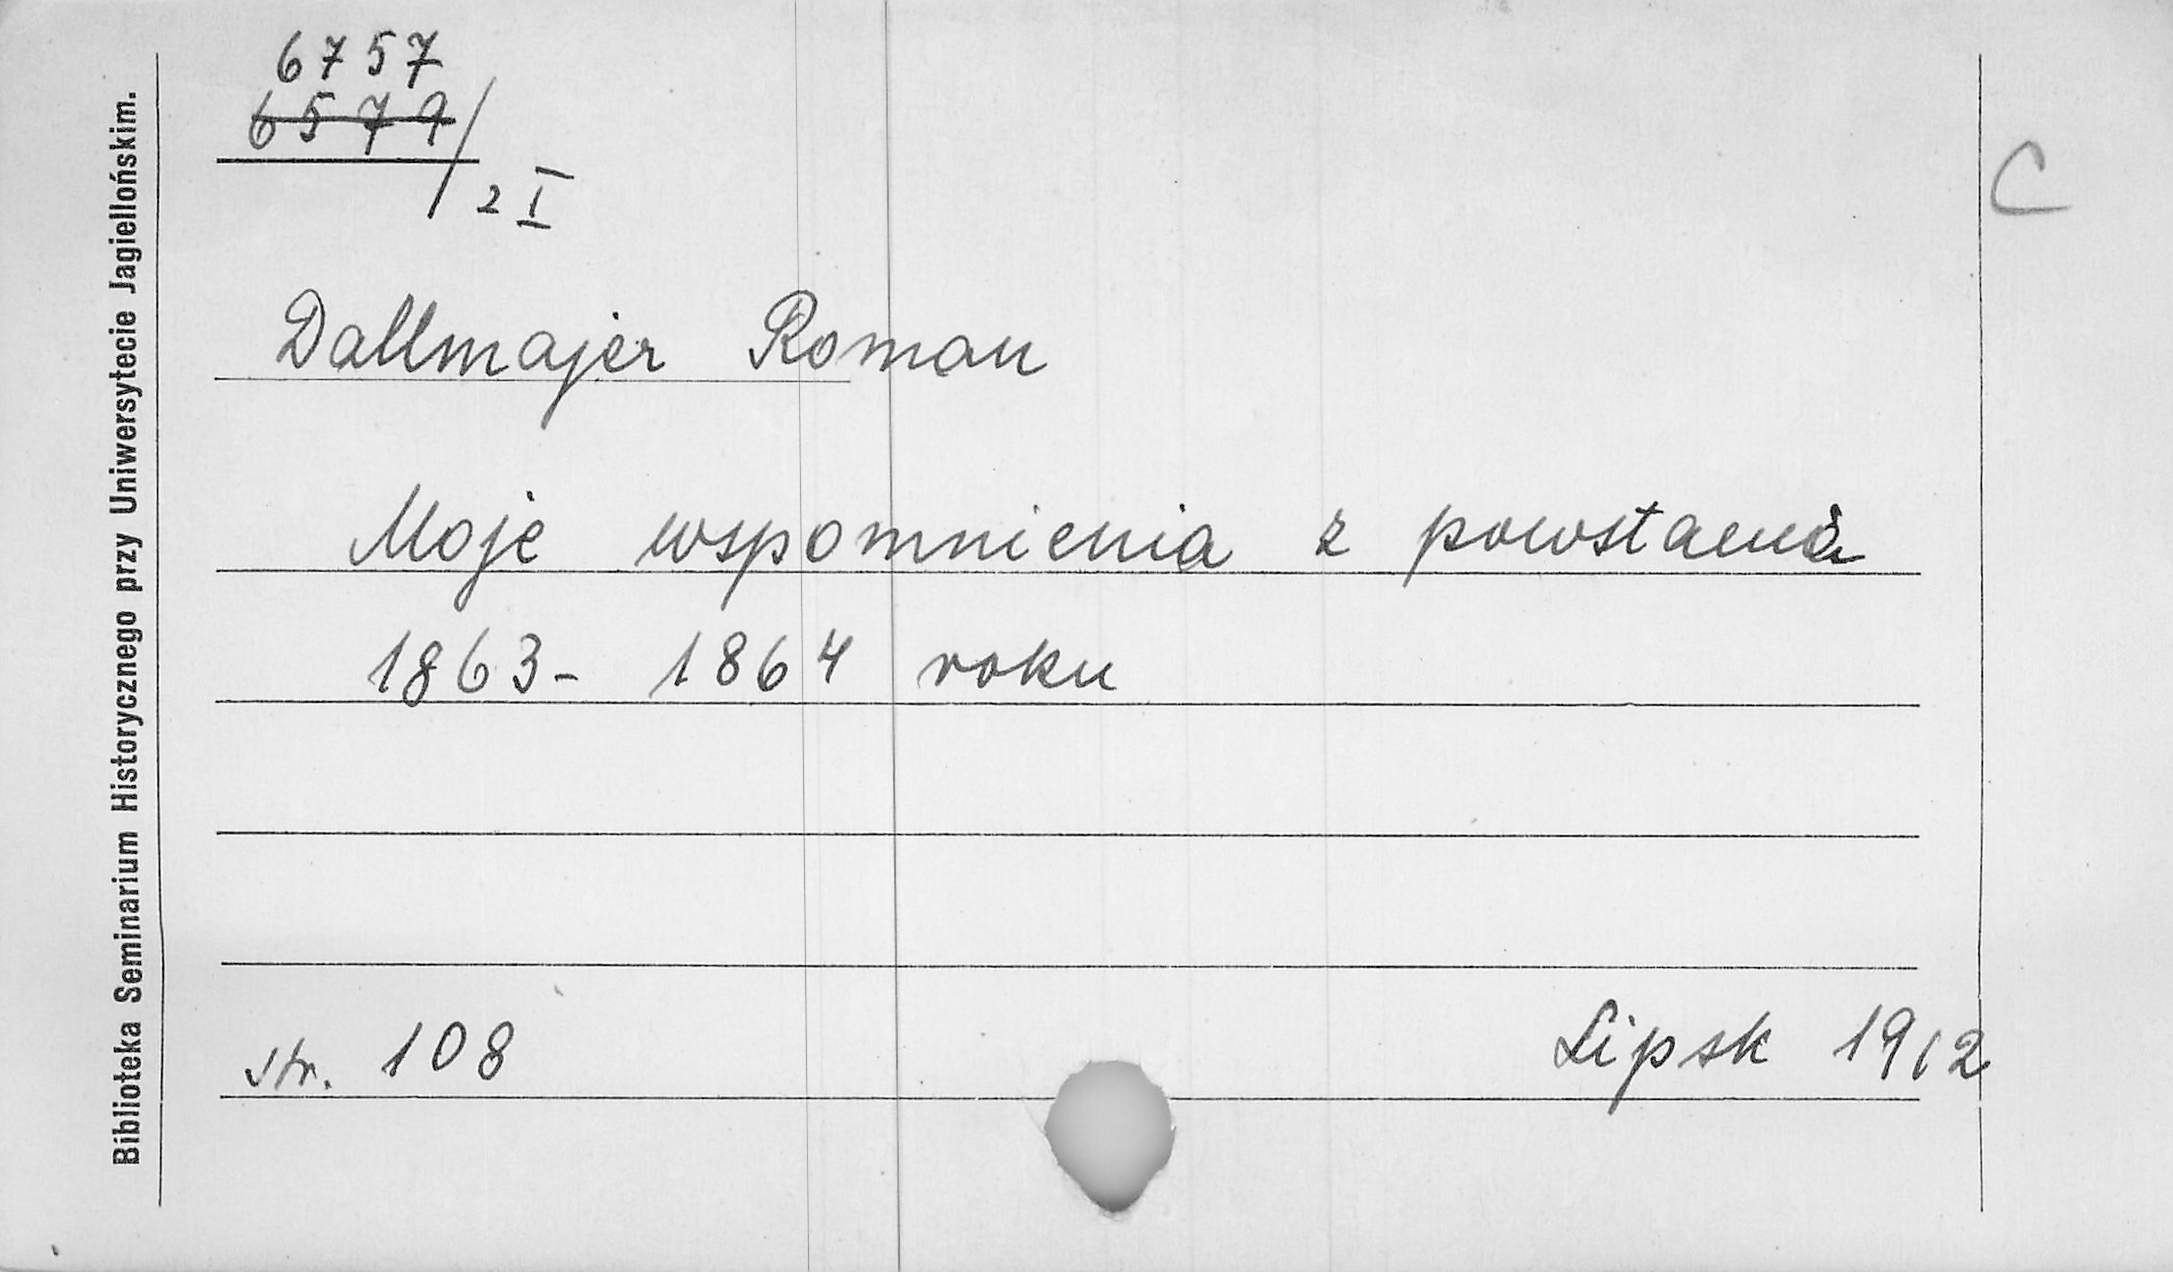 6757
6579/2 I
C
Dallmajer Roman
Moje wspomnienia z powstania
1863- 1864 roku
str. 108
Lipsk 1912
Biblioteka Seminarium Historycznego przy Uniwersytecie Jagiellońskim.